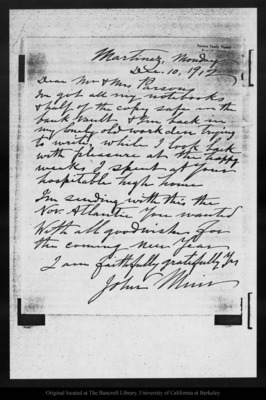 Martinez, Monday
Dec. 10, 1912
Dear Mr & Mrs Parsons
I've got all my notebooks
& half of the copy safe in the
bank vault & I'm back in
my lonely old work den trying
to write, while I look back
with pleasure at the happy
weeks I spent at your
hospitable high home
I'm sending with this the
Nov. Atlantic You wanted
With all good wishes for
the coming new Year
I am faithfully gratefully Yrs
John Muir
Original located at The Bancroft Library, University of California at Berkeley